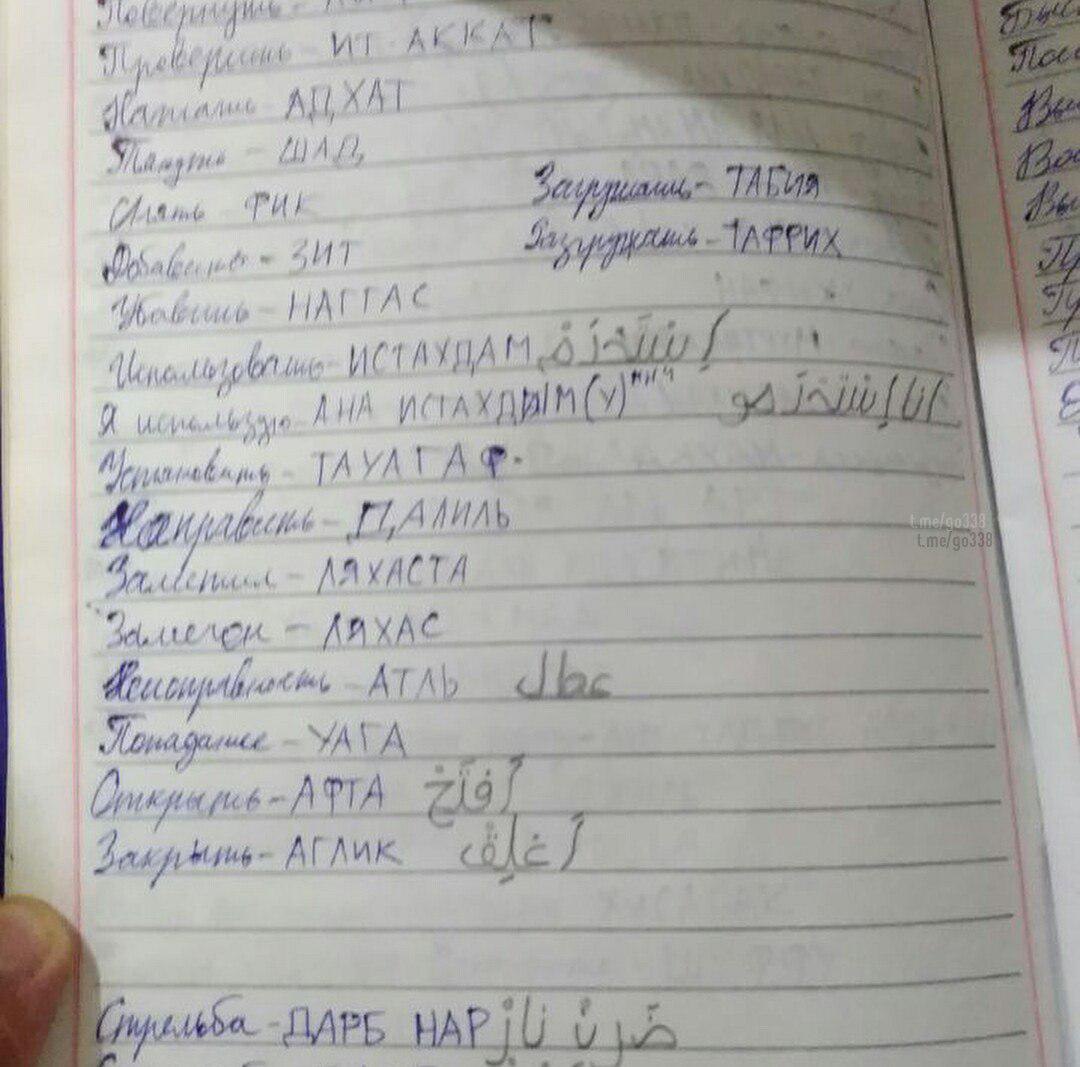 Проверить - ИТ-АККАТ
Нажать АДХАТ
- ШАД
Снять ФИК
Загружать - ТАБИЯ
Добавить - ЗИТ
Разгружать - ТАФРИХ
Убавить - НАГГАС
Использовать - ИСТАХДАМ إستخدم
Я использую АНА ИСТАХДЫМ(У)мн.ч أنا إستخدمو
Установить - ТАУАГАФ.
Направить - ДАЛИЛЬ
Заметил - ЛЯХАСТА
Замечен - ЛЯХАС
t.me/go338
t.me/go338
Неисправность - АТЛЬ عطال
Попадание - УАГА
Открыть - АФТА أفتح
Закрыть - АГЛИК أغلق
Стрельба - ДАРБ НАР ضرب نار